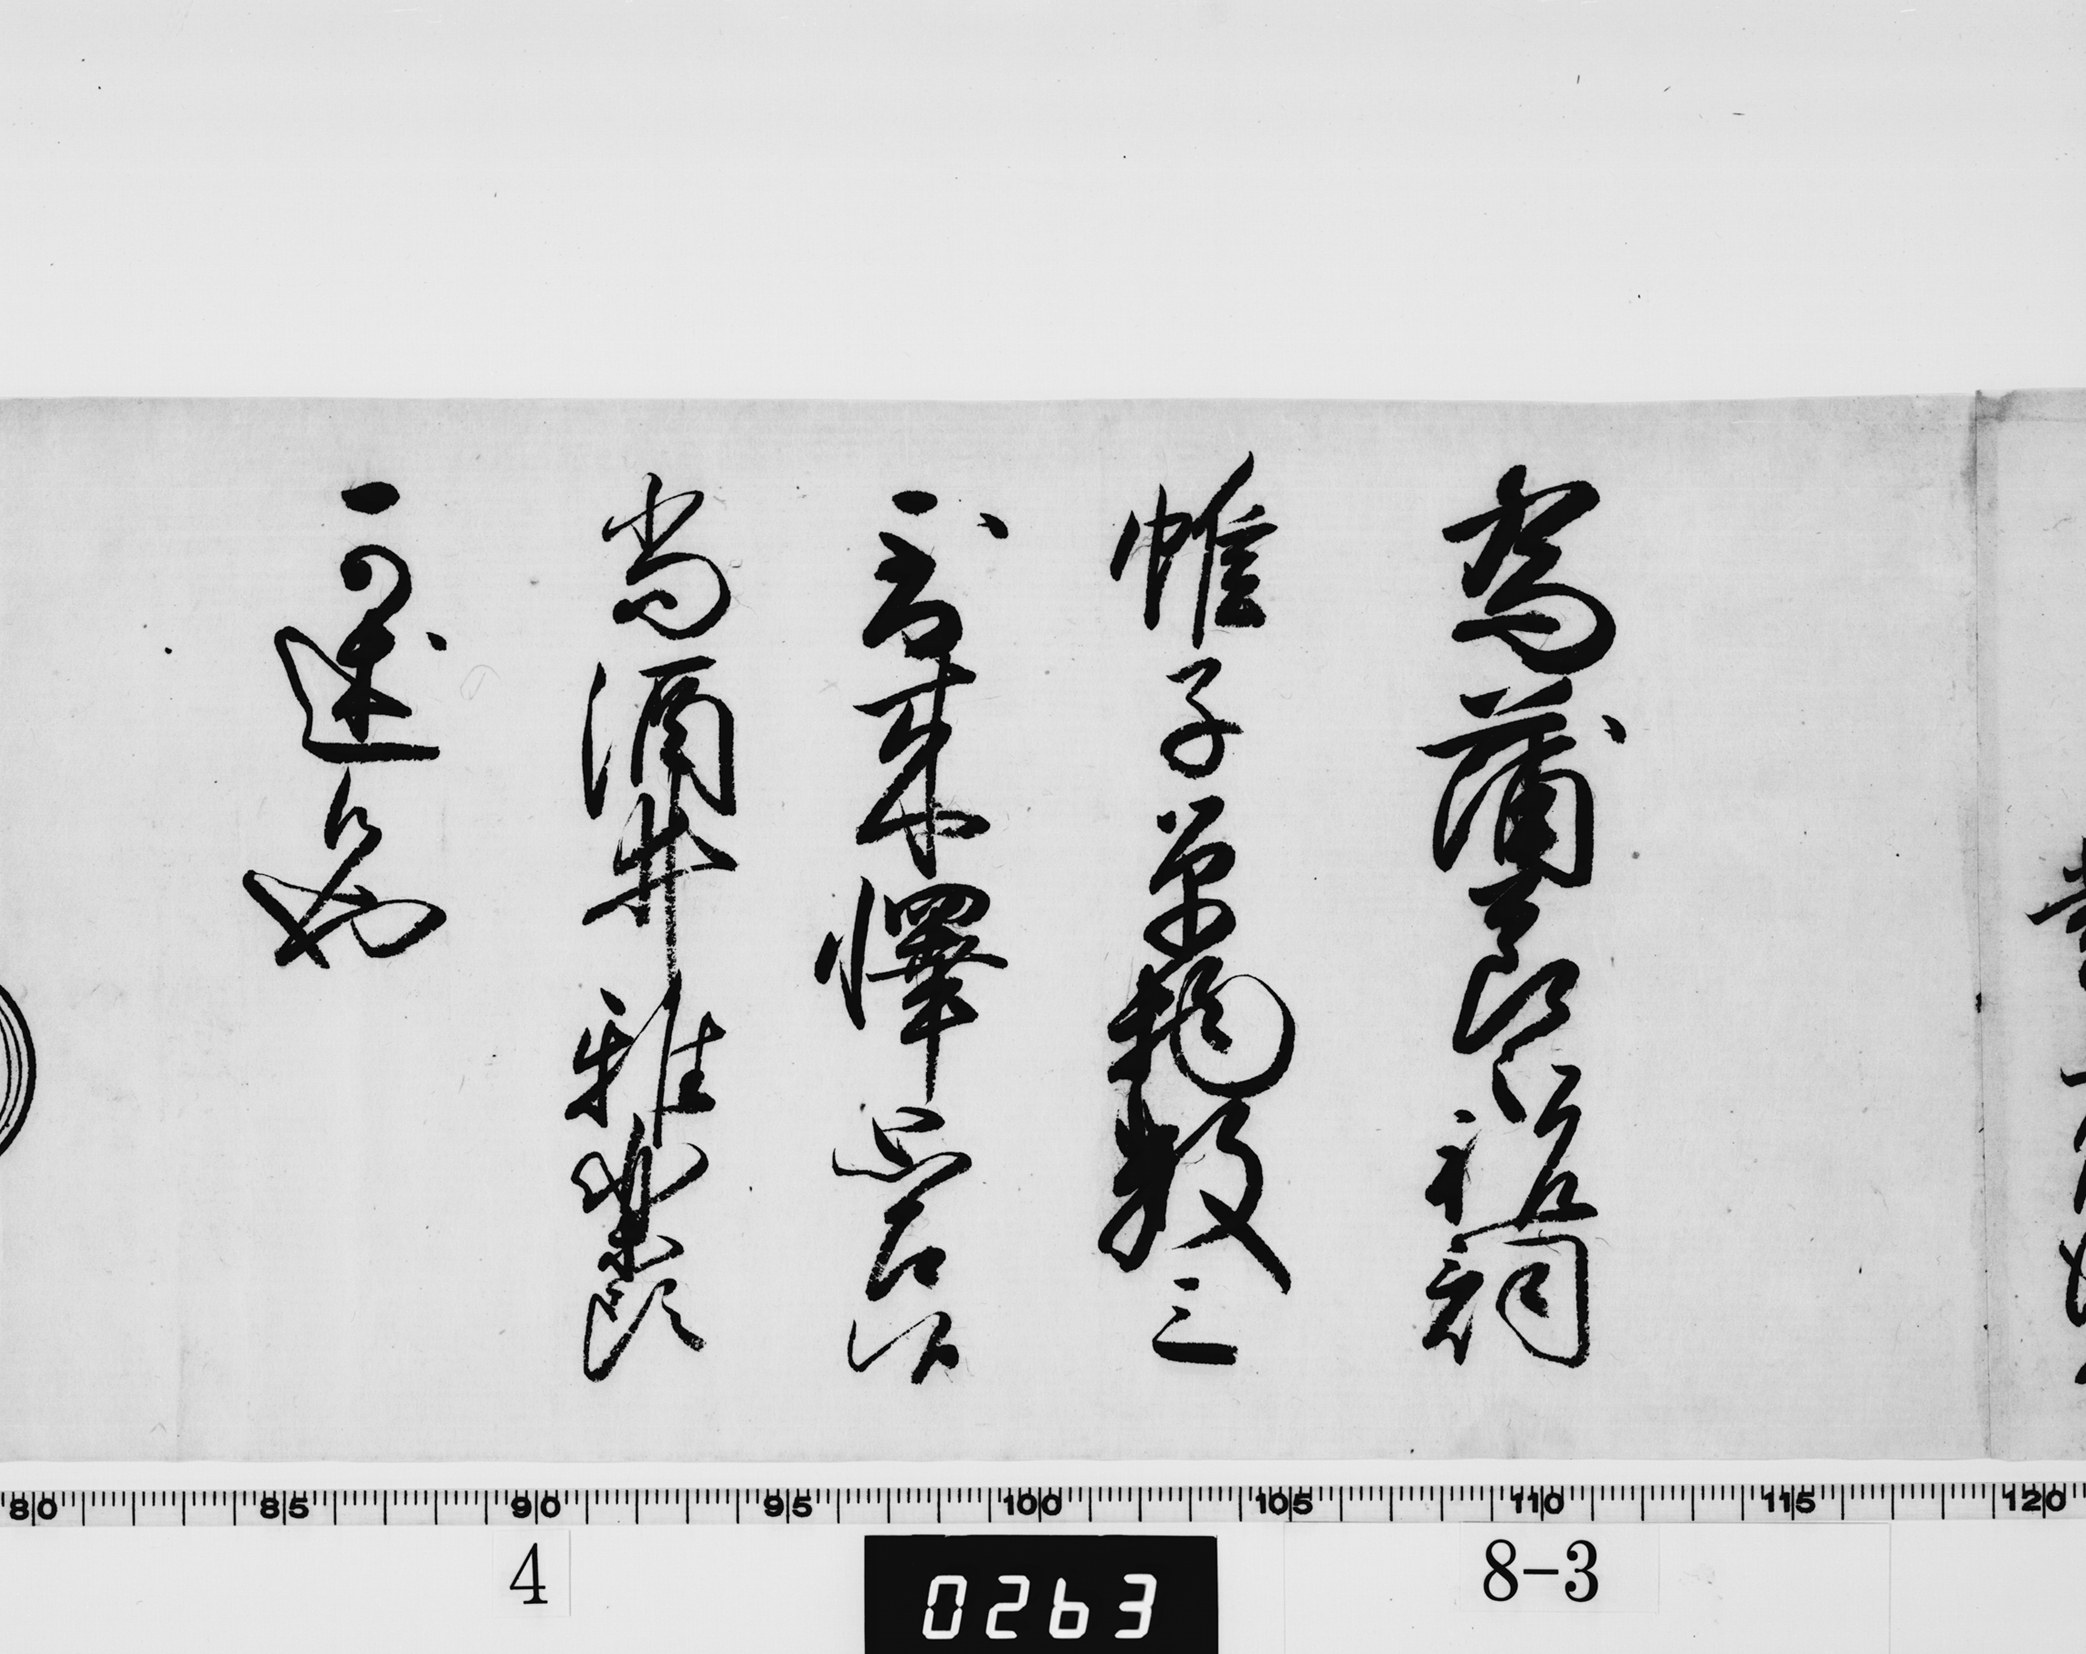 為蒲節之祝詞
帷子単物数三
到来懌思召候
尚酒井雅楽頭
可述候也
80 85 90 95 100 105 110 115 120
4
0263
8-3